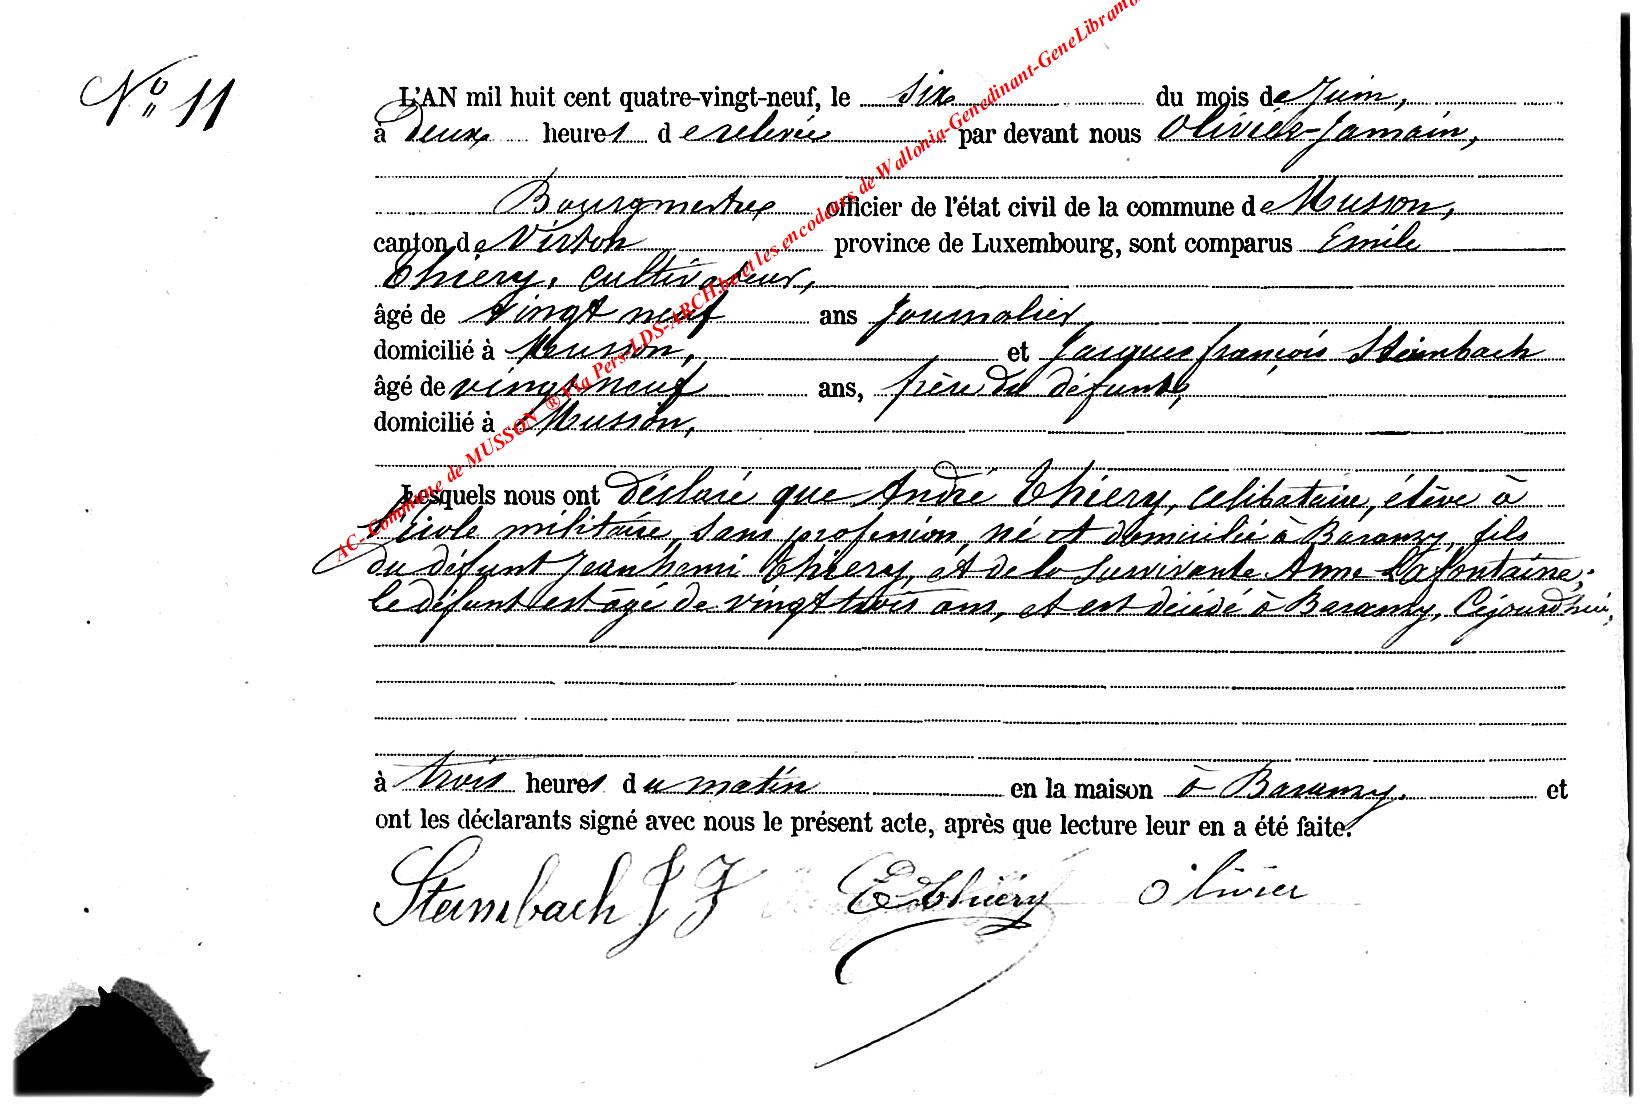 N° 11
L'AN mil huit cent quatre-vingt-neuf, le six du mois de Juin,
à deux heures de relevée par devant nous Olivier-Jamain,
Bourgmestre officier de l'état civil de la commune de Musson,
canton de Virton province de Luxembourg, sont comparus Emile
Thiery, cultivateur,
âgé de vingt neuf ans Journalier,
domicilié à Musson, et Jacques françois Steinbach
âgé de vingt neuf ans, frère du défunt,
domicilié à Musson,
Lesquels nous ont déclaré que André Thiery, celibataire, élève à
l'école militaire, sans profession, né et domicilié à Baranzy, fils
du défunt Jean henri Thiery, et de la survivante Anne Lafontaine;
le défunt est âgé de vingt trois ans, et est décédé à Baranzy, Cejourdhui,
à trois heures du matin en la maison à Baranzy. et
ont les déclarants signé avec nous le présent acte, après que lecture leur en a été faite.
Steinbach J F E Thiéry Olivier
AC-Commune de MUSSON ® Via Pers-LDS-ARCH.be et les encodeurs de Wallonia-Genedinant-GeneLibramo